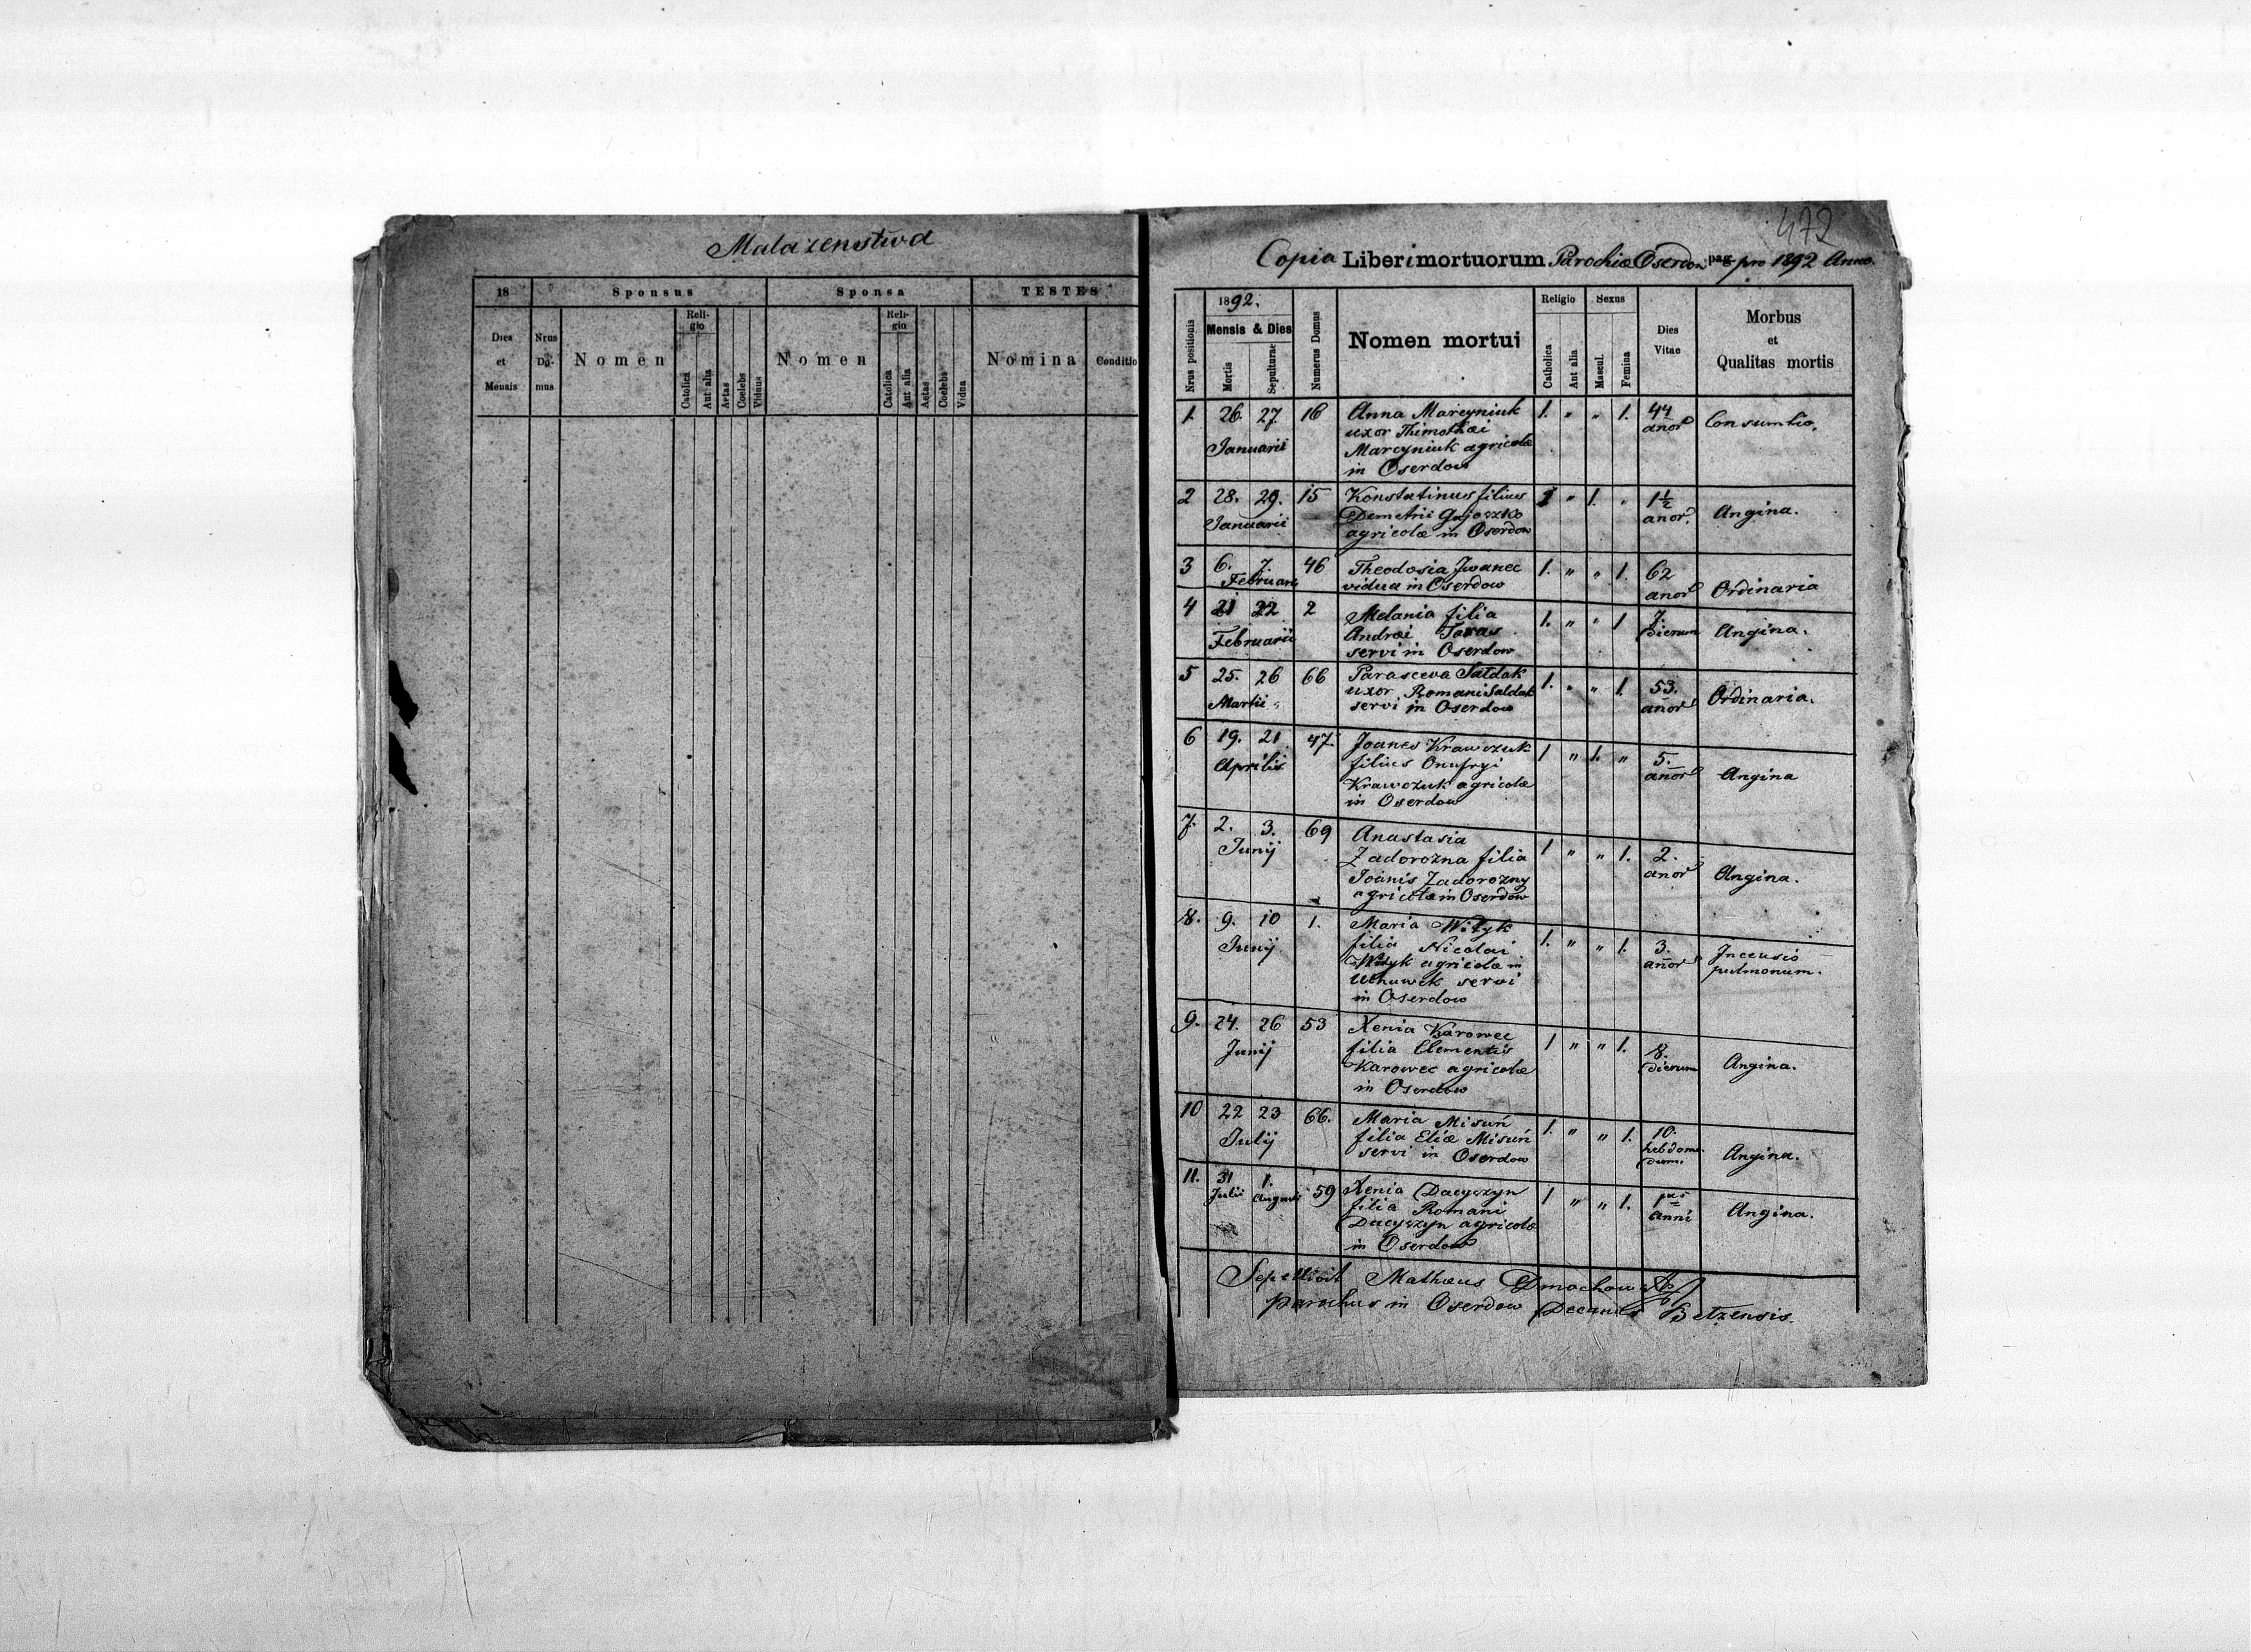 Malazenstwa
18
Sponsus
Sponsa
TESTES
Dies et Mensis
Nrus Do- mus
Nomen
Reli- gio
Catolica
Aut alia
Aetas
Coelebs
Viduus
Nomen
Reli- gio
Catolica
Aut alia
Aetas
Coelebs
Vidua
Nomina
Conditio
472
Copia Liberi mortuorum Parochiæ Oserdow pag. pro 1892 Anno.
Nrus positionis
1892.
Mensis & Dies
Mortis
Sepulturae
Numerus Domus
Nomen mortui
Religio
Catholica
Aut alia
Sexus
Mascul.
Femina
Dies Vitae
Morbus
et
Qualitas mortis
1 26. 27. 16 Anna Marcyniuk 1. " " 1. 44 Consumtio.
uxor Thimothæi anor
Januarii Marcyniuk agricolæ
in Oserdow
2 28. 29. 15 Konstatinus filius 1 " 1. " 1½
Januarii Demetrii Gajoszko anor. Angina.
agricolæ in Oserdow
3 6. 7. 46 Theodosia Iwanec 1. " " 1. 62
Februarii vidua in Oserdow anor Ordinaria
4 21 22 2 Melania filia 1. " " 1 7.
Februarii Andrei Taras Dierum Angina.
servi in Oserdow
5 25. 26 66 Parasceva Saldak 1. " " 1. 53.
Martii uxor Romani Saldak anor Ordinaria.
servi in Oserdow
6 19. 21 47. Joanes Krawczuk 1 " 1. " 5.
Aprilis filius Onufryi anor Angina
Krawczuk agricolæ
in Oserdow
7. 2. 3. 69 Anastasia 1 " " 1. 2.
Junij Zadorozna filia anor Angina.
Joanis Zadorozny
agricolæ in Oserdow
8. 9. 10 1. Maria Wityk 1. " " 1. 3. Incensio
Junij filia Nicolai anor pulmonum.
Wityk agricolæ in
Uhnowek servi
in Oserdow
9. 24. 26 53 Xenia Karowec 1 " " 1. 8.
Junij filia Clementis Dierum Angina.
Karowec agricolæ
in Oserdow
10 22 23 66. Maria Misuń 1. " " 1. 10.
Julij filia Eliæ Misuń hebdoma- Angina.
servi in Oserdow dum.
11. 31 1. 59 Xenia Dacyszyn 1 " " 1.
Julii Augusti filia Romani anni Angina.
Dacyszyn agricolæ
in Oserdow
Sepellivit Mathæus Dmochowski
parochus in Oserdow Decanus Betzensis.